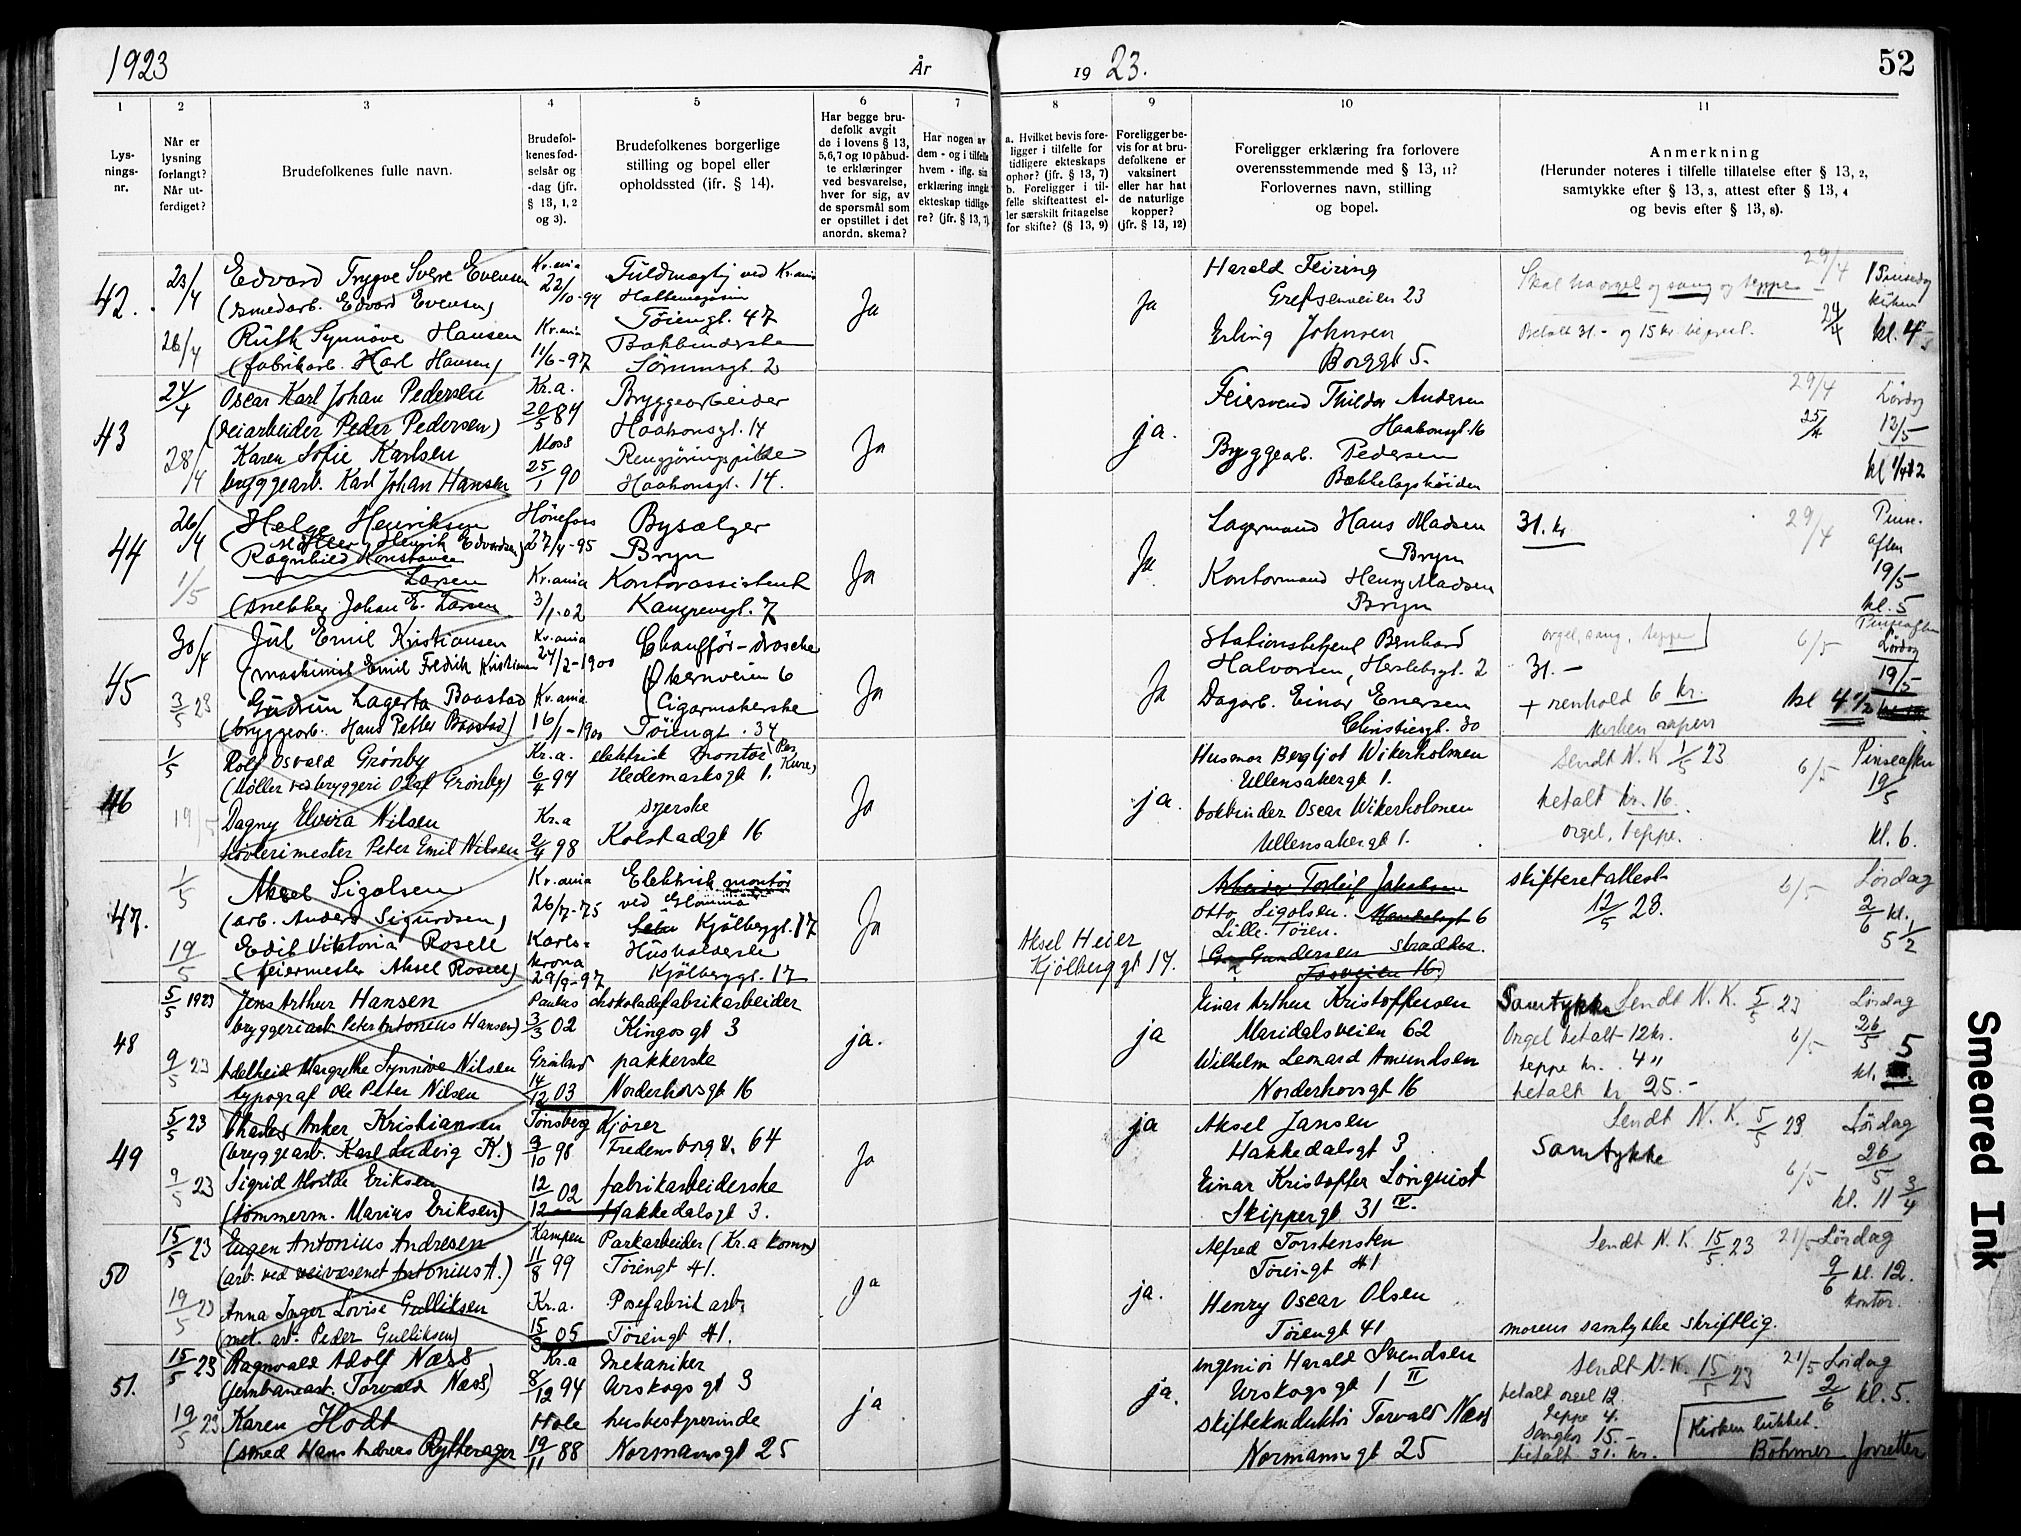 1923
År
19 23.
52
1 2 3 4 5 6 7 8 9 10 11
Lys-
nings-
nr.
Når er
lysning
forlangt?
Når ut-
ferdiget?
Brudefolkenes fulle navn.
Brudefol-
kenes fød-
selsår og
-dag (jfr.
§ 13, 1, 2
og 3).
Brudefolkenes borgerlige
stilling og bopel eller
opholdssted (ifr. § 14).
Har begge bru-
defolk avgit
de i lovens § 13,
5, 6, 7 og 10 påbud-
te erklæringer
ved besvarelse,
hver for sig, av
de spørsmål som
er opstillet i det
anordn. skema?
Har nogen av
dem - og i tilfelle
hvem - iflg. sin
erklæring inngåt
ekteskap tidlige-
re? (jfr. § 13, 7)
a. Hvilket bevis fore-
ligger i tilfelle for
tidligere ekteskaps
ophør? (jfr. § 13, 7)
b. Foreligger i til-
felle skifteattest el-
ler særskilt fritagelse
for skifte? (§ 13, 9)
Foreligger be-
vis for at bru-
defolkene er
vaksinert
eller har hat
de naturlige
kopper?
(jfr. § 13, 12)
Foreligger erklæring fra forlovere
overensstemmende med § 13, 11?
Forlovernes navn, stilling
og bopel.
Anmerkning
(Herunder noteres i tilfelle tillatelse efter § 13, 2,
samtykke efter § 13, 3, attest efter § 13, 4
og bevis efter § 13, 8).
42.
23/4
Edvard Trygve Sverre Evensen
Kr.ania
22/10-94
Fuldmægtig ved Kr.ania
(smedarb. Edvard Evensen)
Tøiengt. 47
26/4
Ruth Synnøve Hansen
Kr.ania
11/6-97
Bokbinderske
(fabrikarb. Karl Hansen)
Sørumsgt. 2
Ja
Ja
Harald Feiring
Grefsenveien 23
Erling Johnsen
Borggt 5.
Skal ha orgel og sang og teppe
29/4
kl. 4
43
24/4
Oscar Karl Johan Pedersen
Kr.a.
20/5 84
Bryggearbeider
(veiarbeider Peder Pedersen)
Haakonsgt. 14
28/4
Karen Sofie Karlsen
Moss
25/1 90
Rengjøringspike
bryggearb. Karl Johan Hansen
Haakonsgt. 14.
Ja
ja.
Feiersvend Thildor Andersen
Haakonsgt. 16
Byggearb. Pedersen
Bækkelagshøiden
29/4
25/4
Lørdag
12/5
44
26/4
Helge Henriksen
Hönefoss
27/4-95
Bysælger
Bryn
1/5
Ragnhild Konstance
Larsen
Kr.ania
3/1-02
Kontorassistent
(snekker Johan E. Larsen
Kangrevgt. 7
Ja
Ja
Lagermand Hans Madsen
Bryn
Kontormand Henry Madsen
Bryn
31. kr
29/4
Pinse-
aften
19/5
kl. 5
45
30/4
Jul Emil Kristiansen
Kr.ania
24/2-1900
Chauffør - drosche
(maskinist Emil Fredrik Kristiansen
Økernveien 6
3/5 23
Gudrun Lagerta Baastad
Kr.ania
16/1-1900
Cigarmakerske
(bryggearb. Hans Petter Baastad)
Tøiengt. 34
Ja
Ja
Stationsbetjent Bernhard
Halvorsen, Herslebsgt. 2
Dagarb. Einar Enersen
Christiesgt. 30
orgel, sang, teppe
31.-
+ renhold 6 kr.
6/5
Pinseaften
Lørdag
19/5
kl 4 1/2
46
1/5
Rolf Osvald Grønby
Kr.a.
6/4 94
elektrisk montør
(Møller ved bryggeri Olaf Grønby)
Hedemarksgt 1.
19/5
Dagny Elvira Nilsen
Kr.a
2/4 98
syerske
høvlerimester Peter Emil Nilsen
Kolstadgt 16
Ja
ja.
Husmor Bergljot Wikerholmen
Ullensakergt 1.
bokbinder Oscar Wikerholmen
Ullensakergt 1.
Sendt N. K 1/5 23
betalt kr. 16.
orgel, teppe.
6/5
Pinseaften
19/5
kl. 6.
47.
1/5
Aksel Sigolsen
Kr.ania
26/7-75
Elektrisk montör
ved Glomma
(arb. Anders Sigurdsen)
Kjölberggt. 17
19/5
Edit Viktoria Rosell
Karls-
krona
29/9-97
Husholderske
(feiermester Aksel Rosell)
Kjölberggt. 17
Ja
Aksel Heier
Kjölberggt 17.
Arbeider Torleif Jakobsen
Otto Sigolsen. Mandalsgt 6
Lille Tøien.
Gundersen skrædder.
Tosveien 16)
skifteretattest
12/5 23.
6/5
Lørdag
2/6 kl.
5 1/2
48
5/5 1923
Jens Arthur Hansen
Paulus
3/3 02
chokoladefabrikarbeider
bryggeriarb Peter Antonius Hansen)
Kingosgt 3
9/5 23
Adelheid Margrethe Synnøve Nilsen
Grønland
14/12 03
pakkerske
typograf Ole Peter Nilsen
Norderhovsgt 16
ja.
ja
Einar Arthur Kristoffersen
Maridalsveien 62
Wilhelm Leonard Amundsen
Norderhovsgt 16
Samtykke Sendt N. K. 5/5 23
Orgel betalt 12 kr.
teppe kr. 4 "
betalt kr 25.-
6/5
Lørdag
26/5
kl. 5
49
5/5 23
Charles Anker Kristiansen
Tønsberg
9/10 98
Kjører
(bryggearb. Karl Ludvig K.)
Fredensborg v. 64
9/5 23
Sigrid Alvilde Eriksen
12/12 02
fabrikarbeiderske
(tømmerm. Marius Eriksen)
Hakkedalsgt 3.
Ja
ja
Aksel Jansen
Hakkedalsgt 3
Einar Kristoffer Lönquist
Skippergt 31 IV.
Sendt N. K. 5/5 23
Samtykke
6/5
Lørdag
26/5
kl. 11 3/4
50
15/5 23
Eugen Antonius Andresen
Kampen
11/8 99
Parkarbeider (Kr.a komm)
(arb. ved veivæsenet Antonius A.)
Tøiengt 41.
19/5 23
Anna Inger Lovise Gulliksen
Kr.a.
15/3 05
Posefabrik arb.
(met. arb. Peder Gulliksen)
Tøiengt 41.
ja
ja.
Alfred Torstensten
Tøiengt 41
Henry Oscar Olsen
Tøiengt 41
Sendt N.K. 15/5 23
21/5
Lørdag
9/6 kl. 12.
kontor.
morens samtykke skriftlig.
51.
15/5 23
Ragnvald Adolf Næss
Kr.a
8/12 94
mekaniker
(jernbanearb. Torvald Næss)
Urskogsgt 3
19/5 23
Karen Hodt
Hole
19/11 88
husbestyrerinde
(smed Hans Andreas Rytterager
Normannsgt 25
ja
ja.
ingeniør Harald Svendsen
Urskogsgt 1 II
skiftekonduktør Torvald Næss
Normannsgt 25
Sendt N.K. 15/5 23
betalt orgel 12.
teppe 4.
sangkor 15.-
betalt 31. kr.
21/5
Lørdag
2/6 kl. 5.
Kirken lukket.
Böhmer forretter
Smeared Ink